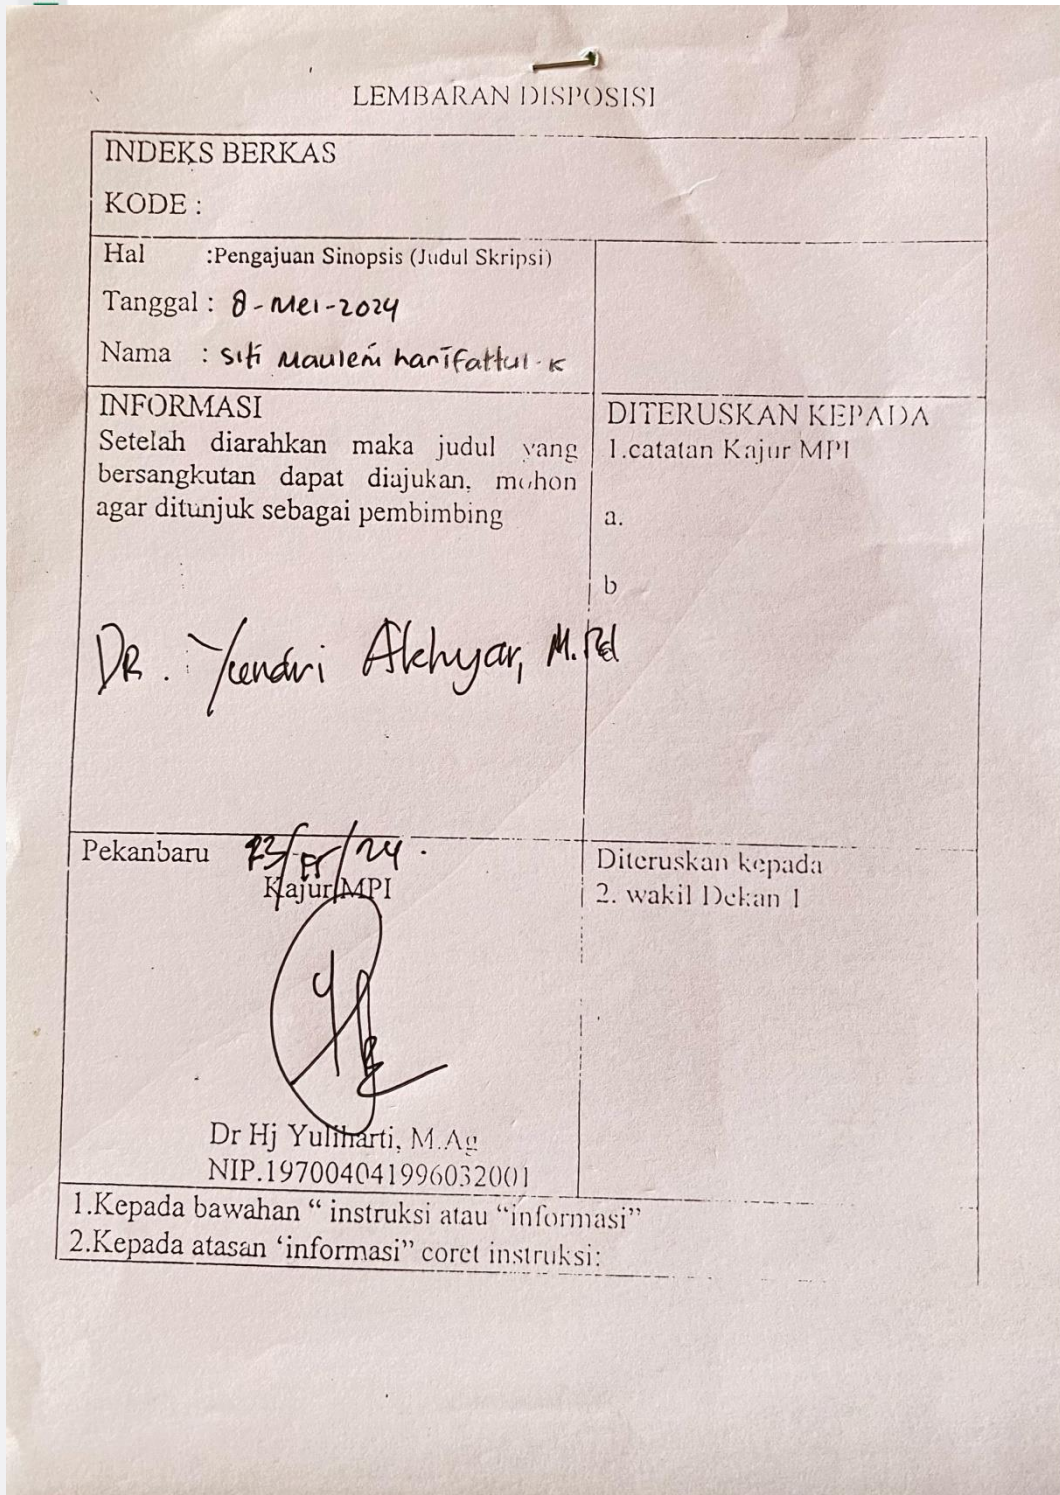 LEMBARAN DISPOSISI
INDEKS BERKAS
KODE :
Hal :Pengajuan Sinopsis (Judul Skripsi)
Tanggal : 8-Mei-2024
Nama : Siti Maulem hanifattul.K
INFORMASI
Setelah diarahkan maka judul yang
bersangkutan dapat diajukan, mohon
agar ditunjuk sebagai pembimbing
DR. Yundri Akhyar, M.Pd
DITERUSKAN KEPADA
1.catatan Kajur MPI
a.
b
Pekanbaru
Kajur MPI
Dr Hj Yuliharti, M.Ag
NIP.197004041996032001
Diteruskan kepada
2. wakil Dekan 1
1.Kepada bawahan “ instruksi atau “informasi”
2.Kepada atasan ‘informasi” coret instruksi: